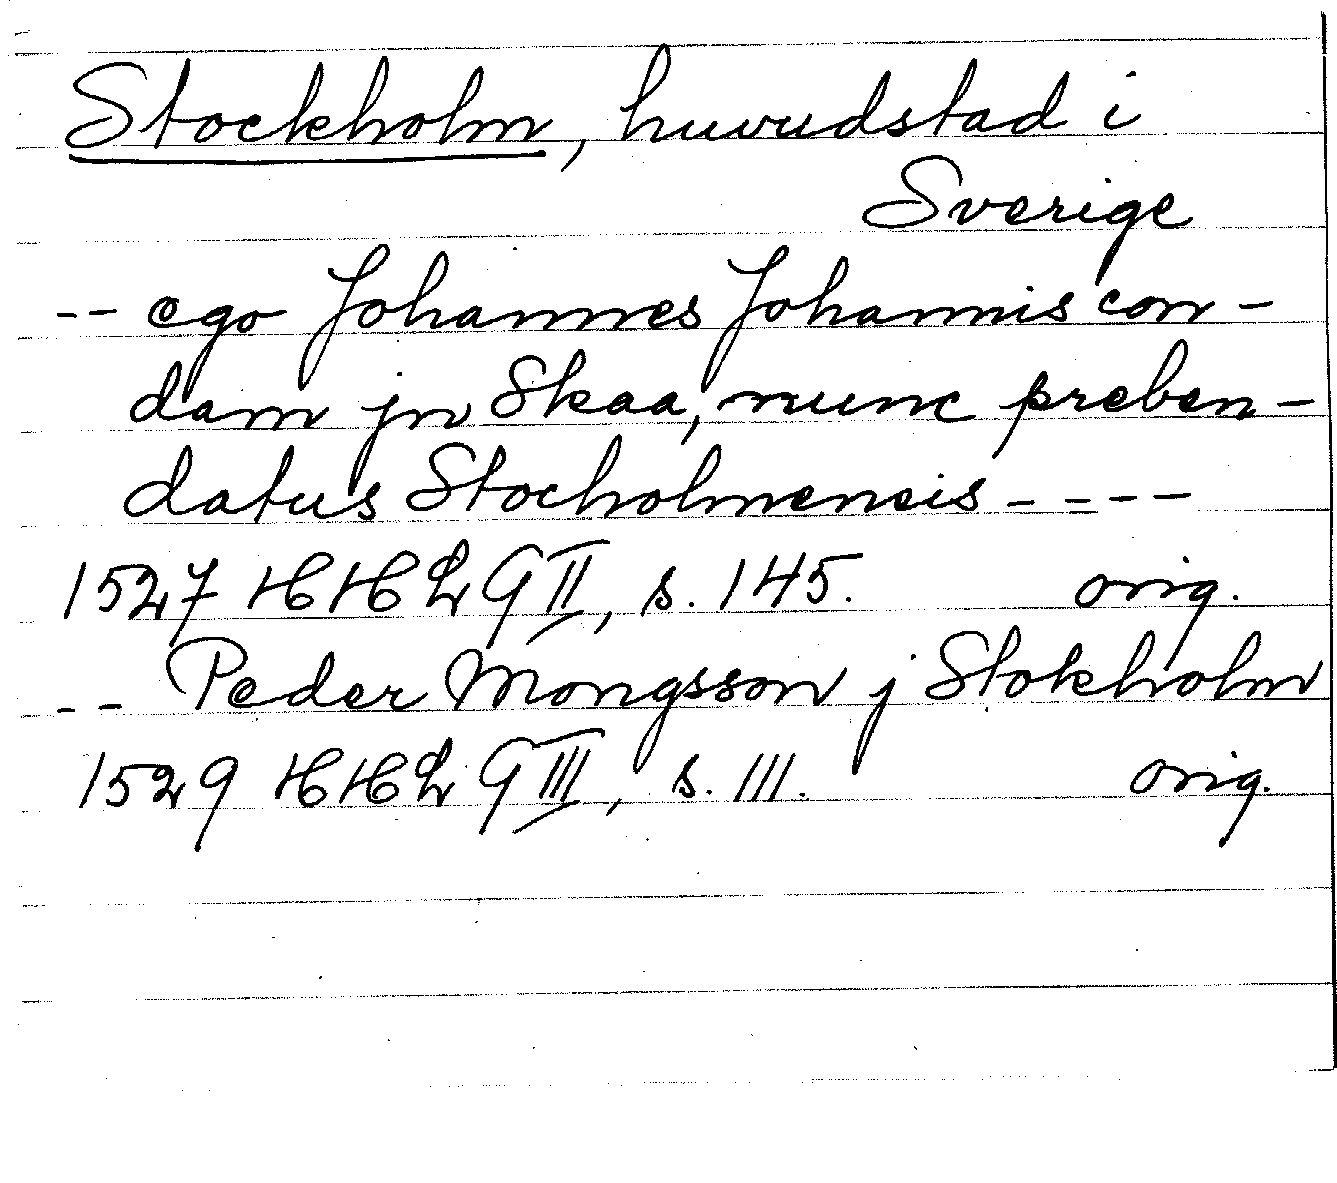 Stockholm, huvudstad i
Sverige
-- ego Johannes Johannis con-
dam jn Skaa, nunc preben-
datus Stocholmensis ----
1527 HHLG II, s. 145. orig.
-- Peder Mongsson j Stokholm
1529 HHLG III, s. 111. orig.